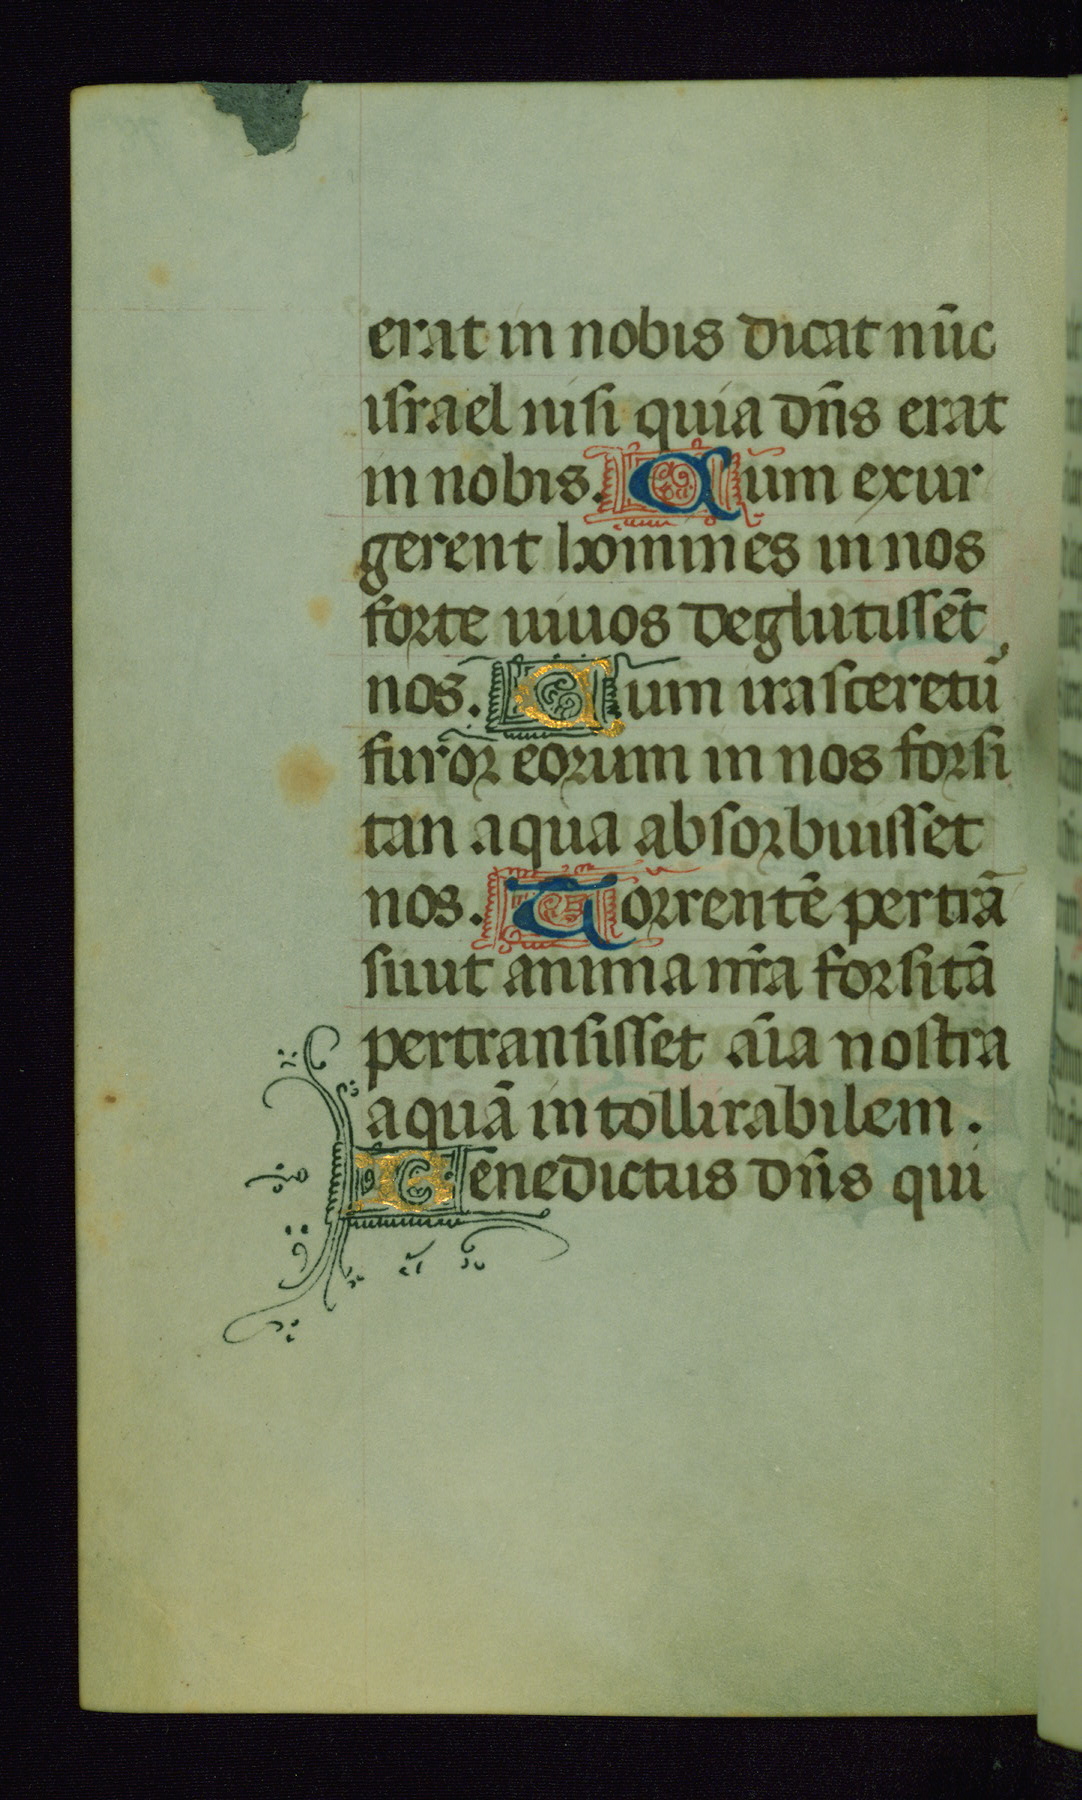 erat in nobis dicat nūc
israel nisi quia dn̄s erat
in nobis. Cum exur
gerent homines in nos
forte uiuos deglutissēt
nos. Cum irasceretū
furor eorum in nos forsi
tan aqua absorbuisset
nos. Torrentē pertrā
siuit anima nr̄a forsitā
pertransisset aīa nostra
aquā intollirabilem.
Benedictus dn̄s qui